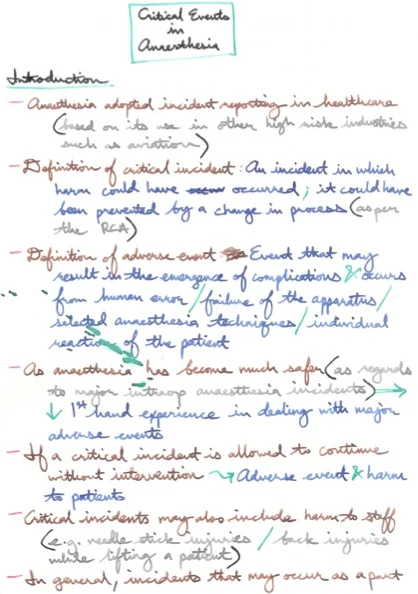 Critical Events
in
Anaesthesia
Introduction
– Anaesthesia adopted incident reporting in healthcare
(based on its use in other high risk industries
such as aviation)
– Definition of critical incident: An incident in which
harm could have occurred; it could have
been prevented by a change in process (as per
the RCA)
– Definition of adverse event: Event that may
result in the emergence of complications & occurs
from human error / failure of the apparatus /
selected anaesthesia techniques / individual
reaction of the patient
– As anaesthesia has become much safer (as regards
to major intraop anaesthesia incidents) →
↓ 1st hand experience in dealing with major
adverse events
– If a critical incident is allowed to continue
without intervention → Adverse event & harm
to patients
– Critical incidents may also include harm to staff
(e.g. needle stick injuries / back injuries
while lifting a patient)
– In general, incidents that may occur as a part